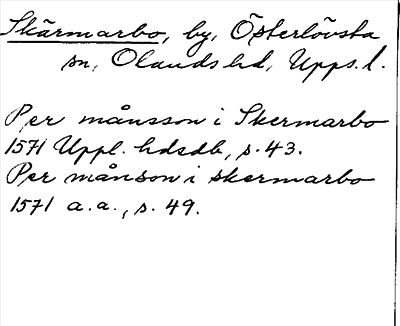 Skärmarbo, by, Österlövsta
sn, Olands hd, Upps. l.
Per månsson i Skermarbo
1571 Uppl. hdsdb, s. 43.
Per månson i skermarbo
1571 a. a., s. 49.